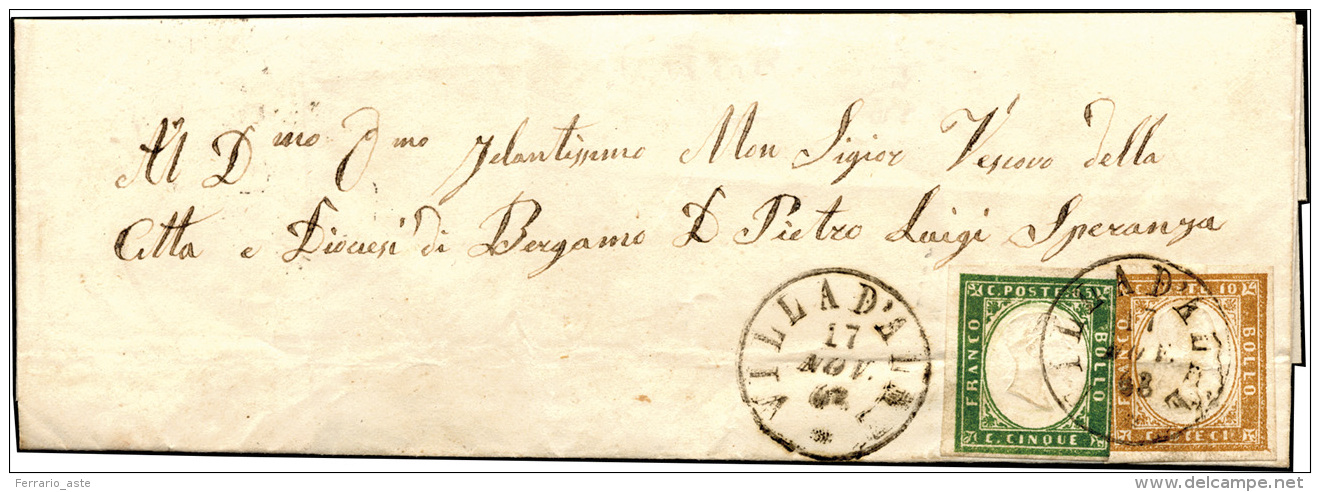 Al D.mo mo Zelantissimo Mon Sigior Vescovo della
Citta e Diocesi di Bergamo D Pietro Luigi Speranza
VILLA D'
17
NOV.
C. POSTE. C5
FRANCO
BOLLO
C. CINQUE
ILLA D'A
NOV.
63
10
FRANCO
BOLLO
Ferrario_aste
www.delcampe.net